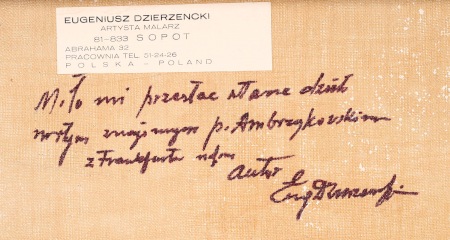 EUGENIUSZ DZIERZENCKI
ARTYSTA MALARZ
81-833 SOPOT
ABRAHAMA 32
PRACOWNIA TEL 51-24-26
POLSKA - POLAND
Miło mi przesłać
moim znajomym p. Ambrzykowskim
z Frankfurtu
Autor
Eug Dzierzencki